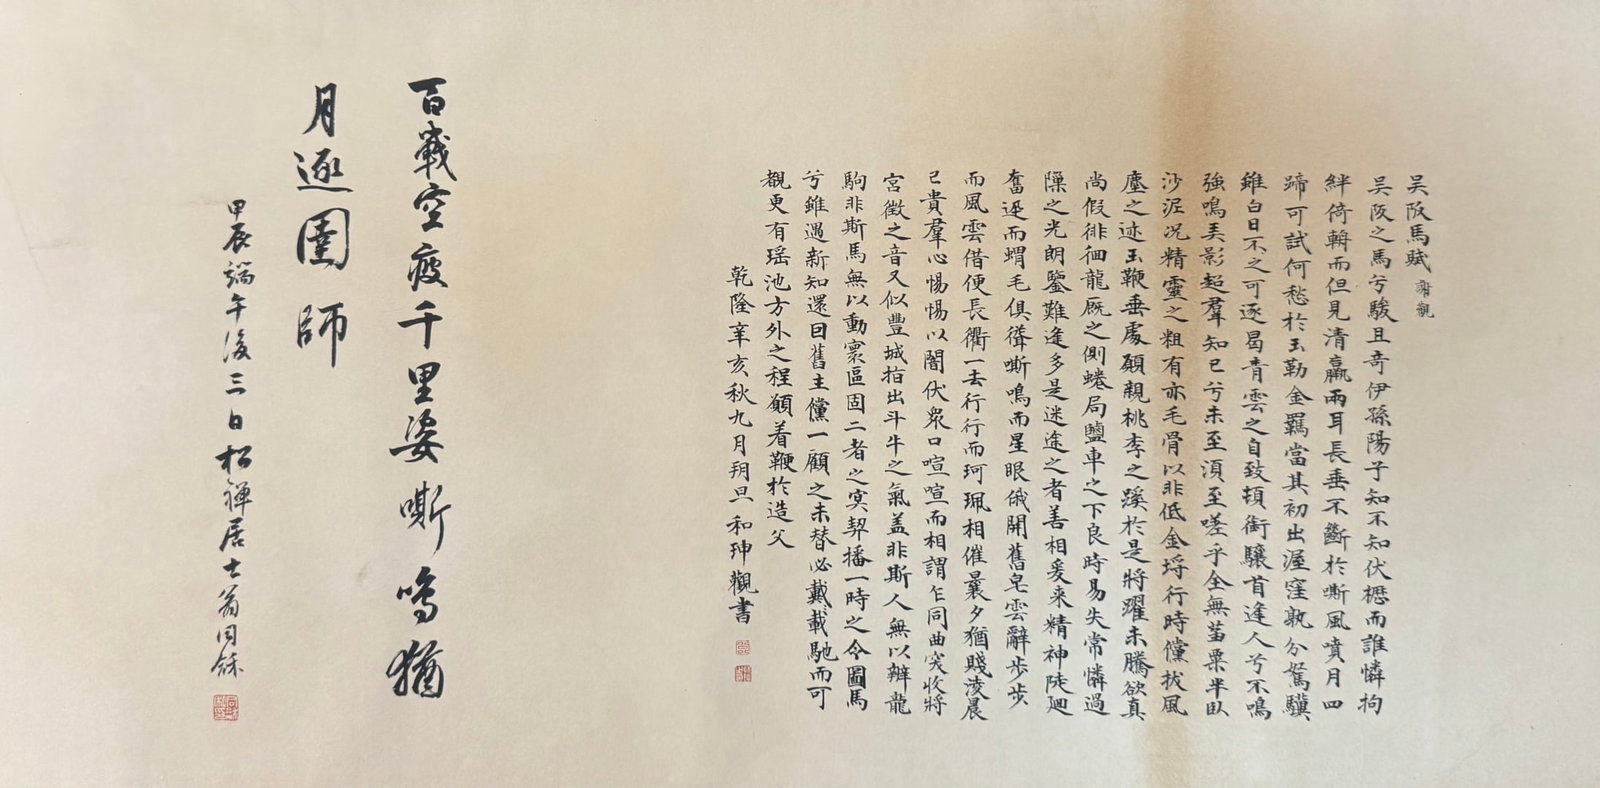 吴阪馬賦 謝觀
吴阪之馬兮駿且奇伊孫陽子知不知伏櫪而誰憐拘
絆倚輈而但見清羸兩耳長垂不斷於嘶風噴月四
蹄可試何愁於玉勒金羈當其初出渥窪孰分駑驥
雖白日不之可逐曷青雲之自致頓銜驤首逢人兮不鳴
強鳴美影超羣知已兮未至須至嗟乎全無蒭粟半臥
沙泥况精靈之粗有亦毛骨以非低金埒行時儻拔風
塵之迹玉鞭垂處願親桃李之蹊於是將躍未騰欲真
尚假徘徊龍厩之側蜷局鹽車之下良時易失常憐過
隟之光朗鑒難逢多是迷途之者善相爰来精神陡廻
奮迅而蝟毛俱聳嘶鳴而星眼俄開舊皂雲辭步步
而風雲借便長衢一去行行而珂珮相催曩夕猶賤淩晨
已貴羣心惕惕以闇伏衆口喧喧而相謂乍同曲突收將
宫徵之音又似豐城掊出斗牛之氣盖非斯人無以辨龍
駒非斯馬無以動寰區固二者之㝠契播一時之令圖馬
兮雖遇新知還曰舊主儻一顧之未替必戴戴馳而可
觀更有瑶池方外之程願着鞭於造父
乾隆辛亥秋九月朔旦和珅觀書
百戰空疲千里姿嘶鳴猶
月逐圉師
甲辰端午後三日松禪居士翁同龢